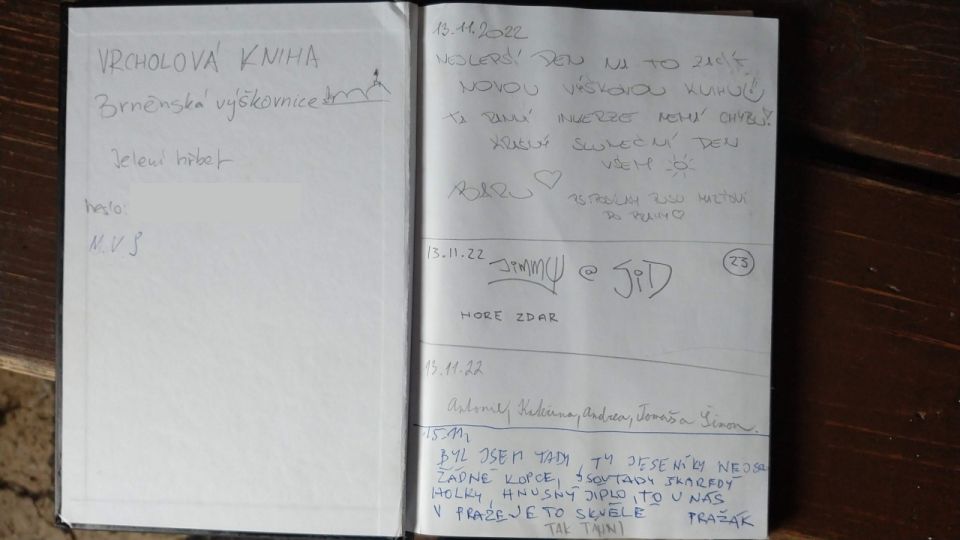 VRCHOLOVÁ KNIHA
Brněnská výškovnice
Jelení hřbet
heslo:
M.V.S
13.11.2022
NEJLEPŠÍ DEN NA TO ZAČÍT
NOVOU VÝŠKOVOU KNIHU
TA RANNÍ INVERZE NEMÁ CHYBU!
KRÁSNÝ SLUNEČNÍ DEN
VŠEM
BARU
DO PRAHY
13.11.22 JIMMY @ JiD 23
HORE ZDAR
13.11.22
Antonie, Kateřina, Andrea, Tomáš a Šimon.
15.11.
BYL JSEM TADY, TY JESENÍKY NEJSOU
ŽÁDNÉ KOPCE, JSOU TADY ŠKAREDÝ
HOLKY, HNUSNÝ JÍDLO, TO U NÁS
V PRAZE JE TO SKVĚLÉ PRAŽÁK
TAK TÁHNI